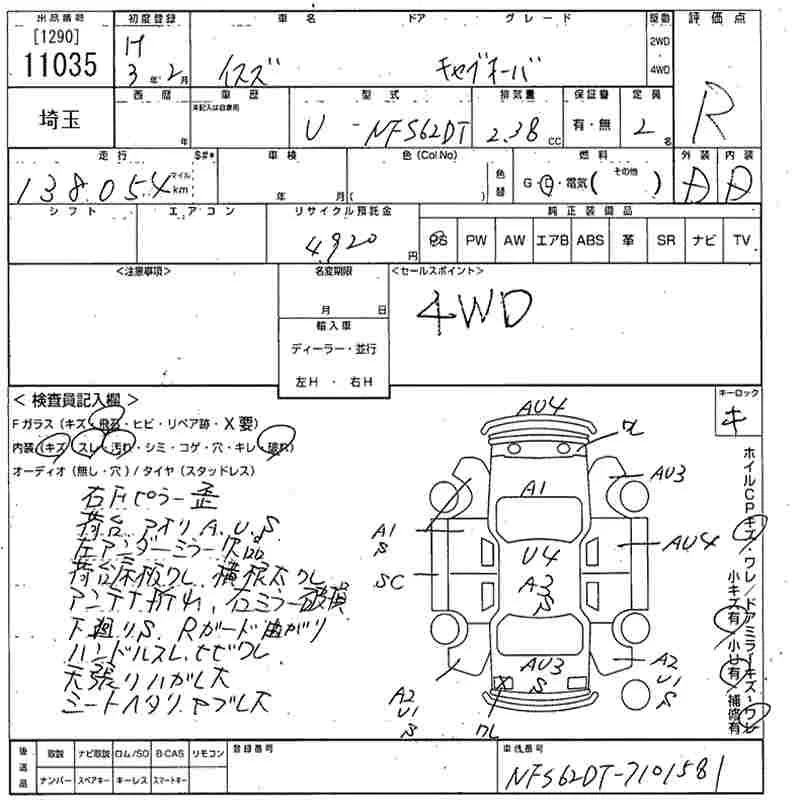 出品番号 初度登録 車名 ドア グレード 駆動 評価点
[1290]
11035
H
3 年 2 月
イスズ キャブオーバ
2WD
・
4WD
R
埼玉
西暦 車歴 型式 排気量 保証書 定員
未記入は自家用
年
U - NFS62DT 2.38 CC 有・無 2 名
走行 S#* 車検 色(Col No) 燃料 外装 内装
138,054 マイル km
年 月 ( ) 色替 G・D・電気( その他 ) D D
シフト エアコン リサイクル預託金 純正装備品
4,920 円
PS PW AW エアB ABS 革 SR ナビ TV
<注意事項> 名変期限 <セールスポイント>
月 日
4WD
輸入車
ディーラー・並行
左H ・ 右H
<検査員記入欄>
キーロック
キ
Fガラス(キズ・飛石・ヒビ・リペア跡・X要)
内装(キズ・スレ・汚れ・シミ・コゲ・穴・キレ・破れ)
オーディオ(無し・穴)/タイヤ(スタッドレス)
右Fピラー歪
荷台、アオリA.U.S
左アンダーミラー欠品
荷台床板ワレ、横根太ワレ
アンテナ折れ、右ミラー破損
下廻りS、Rガード曲がり
ハンドルスレ、ヒビワレ
天張りハガレ大
シートヘタリ、ヤブレ大
AU4
ワレ
A1
AU3
A1
S
U4
AU4
SC
A3
S
AU3
S
A2
U1
S
A2
U1
S
X
ワレ
ホイルCPキズ・ワレ/ドアミラーキズ・ワレ
小キズ有・小U有・補修有
後送品 取説 ナビ取説 ロム/SD B-CAS リモコン 登録番号 車検番号
ナンバー スペアキー キーレス スマートキー
NFS62DT-7101581